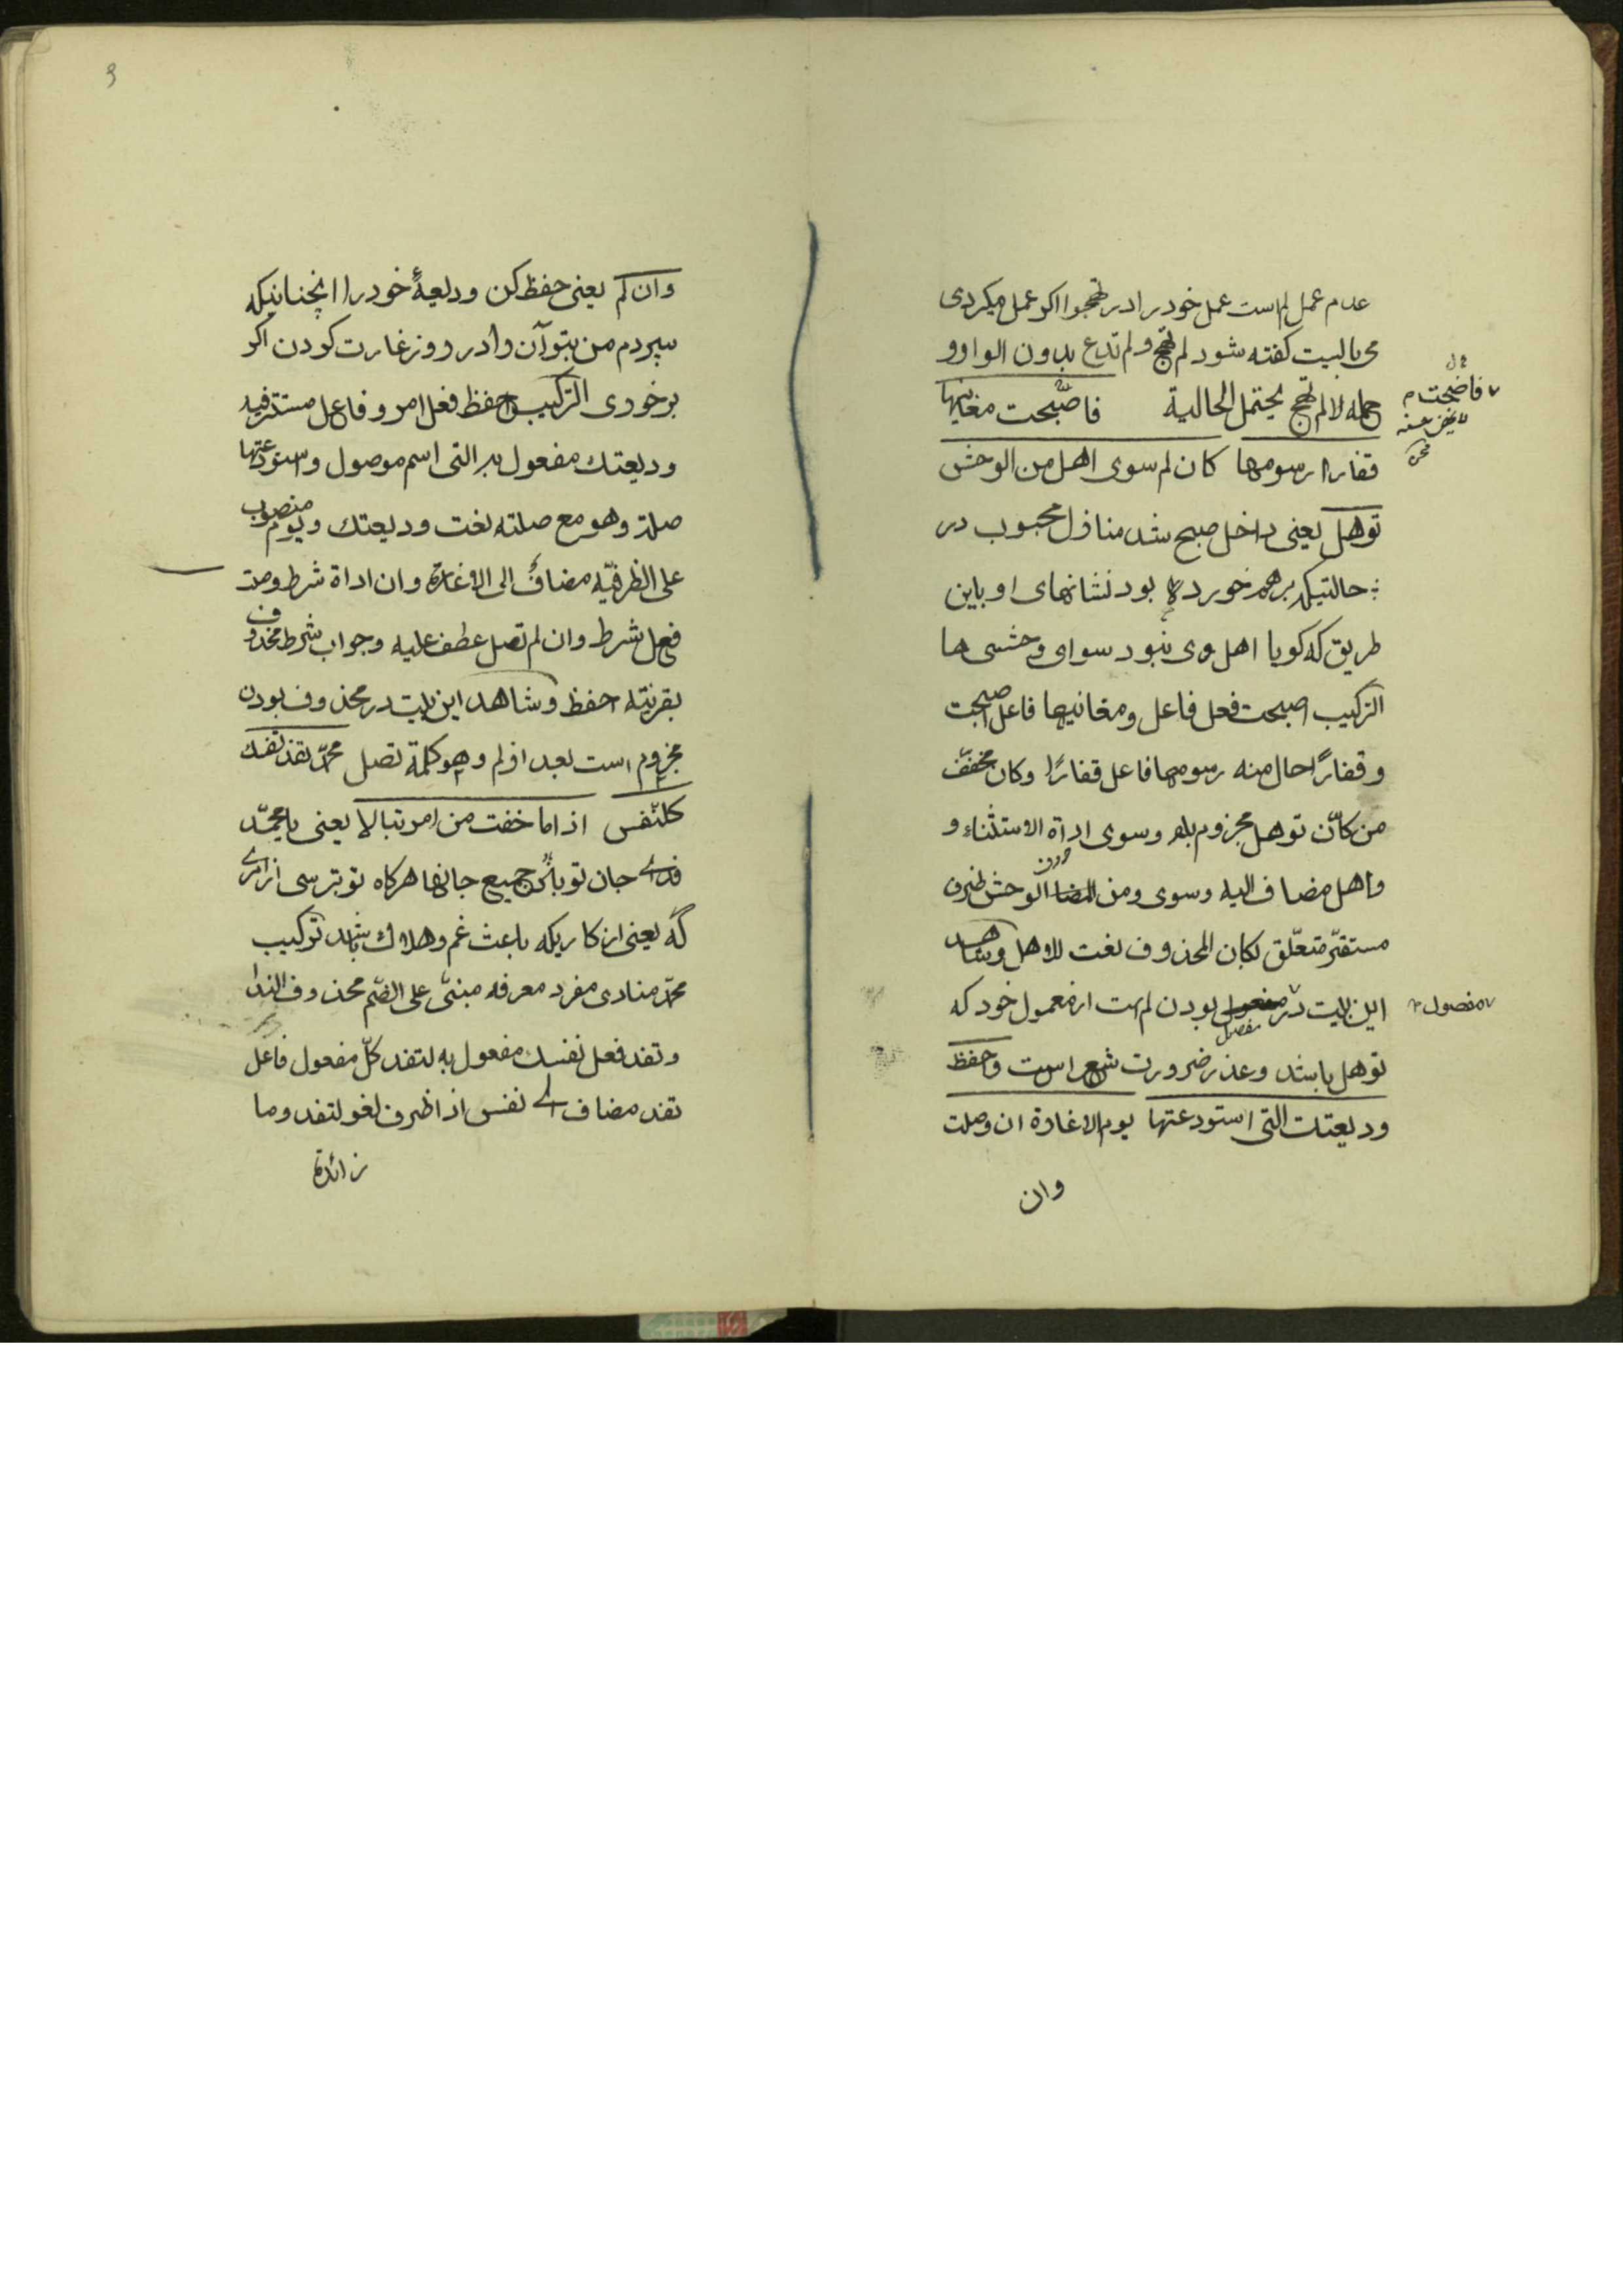 عدم عمل لم است عمل خود را در تهجوا اکر عمل میکردی
می بالیست کفته شود لم تهج ولم تدع بدون الواو و
جمله لا لم تهج یحتمل الحالیة فاصبحت مغانیها
قفارا رسومها کان لم سوی اهل من الوحش
توهل یعنی داخل صبح شد منازل محبوب در
حالتیکه برهم خورده بود نشانهای او باین
طریق که کویا اهل وی نبود سوای وحشی ها
الترکیب اصبحت فعل فاعل ومغانیها فاعل اصبحت
وقفارًا حال منه رسومها فاعل قفارًا وکان مخفّف
من کانّ توهل مجزوم بلم وسوی اداة الاستثناء و
واهل مضاف الیه وسوی ومن الوحش ظرف
مستقرّ متعلّق لکان المحذوف نعت للاهل وشاهد
این بیت در مفصول بودن لم است از معمول خود که
توهل باشد وعذر ضرورت شعر است واحفظ
ودیعتك التی استودعتها یوم الاغارة ان وصلت
وان
فاضحت
مفصول
۹
وان لم یعنی حفظ کن ودیعهٔ خود را انچنانیکه
سپردم من بتو آن را در روز غارت کردن اکر
برخوری الترکیب احفظ فعل امر وفاعل مستتر فیه
ودیعتك مفعول به التی اسم موصول واستودعتها
صلة وهو مع صلته نعت ودیعتك ویوم منصوب
علی الظرفیّه مضافٌ الی الاغارة وان اداة شرط وصلت
فعل شرط وان لم تصل عطف علیه وجواب شرط محذوف
بقرینه احفظ وشاهد این بیت در محذوف بودن
مجزوم است بعد از لم وهو کلمة تصل محمّد تفد نفسك
کلّ نفس اذا ما خفت من امر تبالا یعنی یا محمّد
فدای جان تو باد جمیع جانها هرکاه تو بترسی از امری
که یعنی از کاریکه باعث غم وهلاك باشد ترکیب
محمّد منادی مفرد معرفه مبنیّ علی الضّم محذوف الندا
وتفد فعل نفسك مفعول به لتفد کلّ مفعول فاعل
تفد مضاف الی نفس اذا ظرف لغو لتفد وما
زائدة